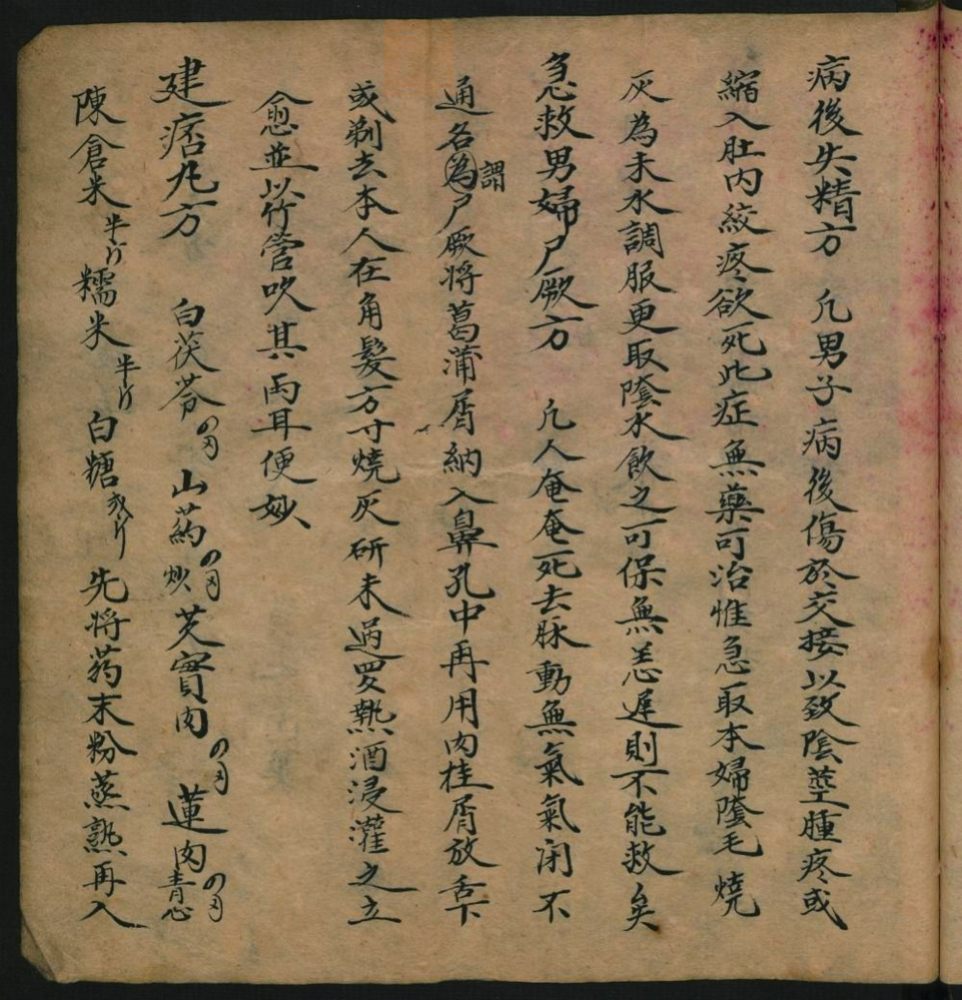 病後失精方　凡男子病後傷於交接以致陰莖腫疼或
縮入肚内絞疼欲死此症無藥可治惟急取本婦陰毛燒
灰為末水調服更取陰水飲之可保無恙遲則不能救矣
急救男婦尸厥方　凡人奄奄死去脉動無氣氣闭不
通名為謂尸厥将菖蒲屑納入鼻孔中再用肉桂屑放舌下
或剃去本人左角髮方寸燒灰研末過罗熱酒浸灌之立
愈並以竹管吹其両耳便妙
建痞丸方　白茯苓 山药炒 芡實肉 蓮肉青心
陳倉米半斤 糯米半斤 白糖弍斤 先将药末粉蒸熟再入